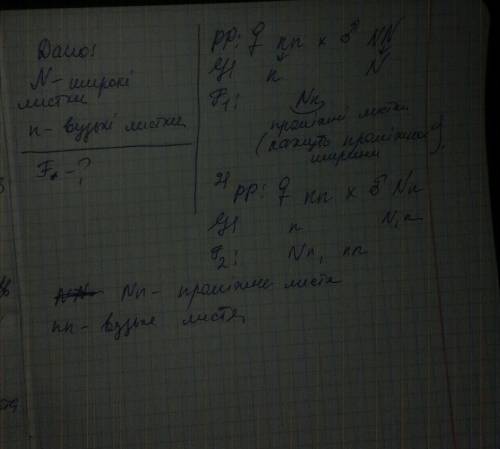 Дано:
N - широкі
листки
n - вузькі листки
F₁ - ?
PP: ♀ nn × ♂ NN
G: n N
F₁: Nn
проміжні листки
(
ширини).
PP: ♀ nn × ♂ Nn
G: n N, n
F₂: Nn, nn
Nn - проміжне листя
nn - вузьке листя